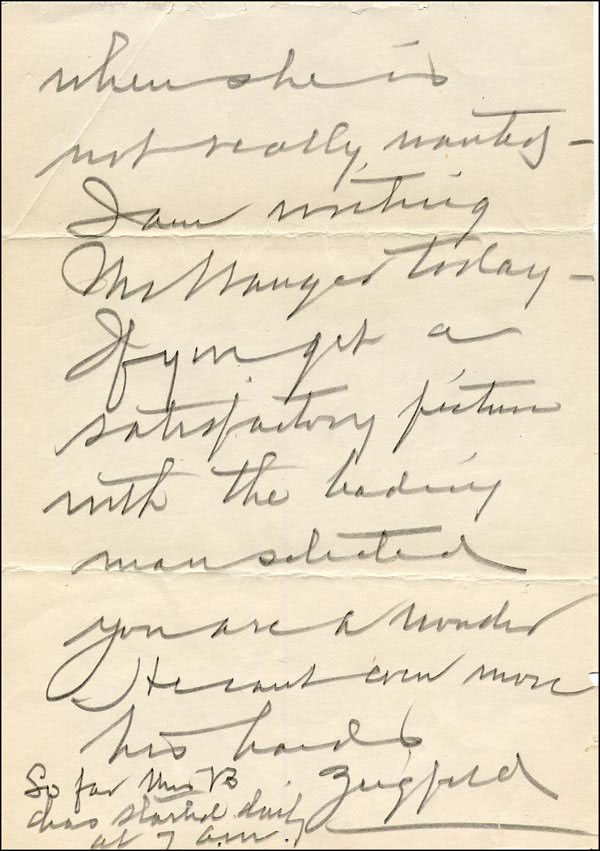 when she is
not really wanted –
I am writing
Mr Wanger today –
If you get a
satisfactory picture
with the leading
man selected
you are a wonder
He cant even move
his hands
Ziegfeld
So far Miss B
has started daily
at 7 a.m.